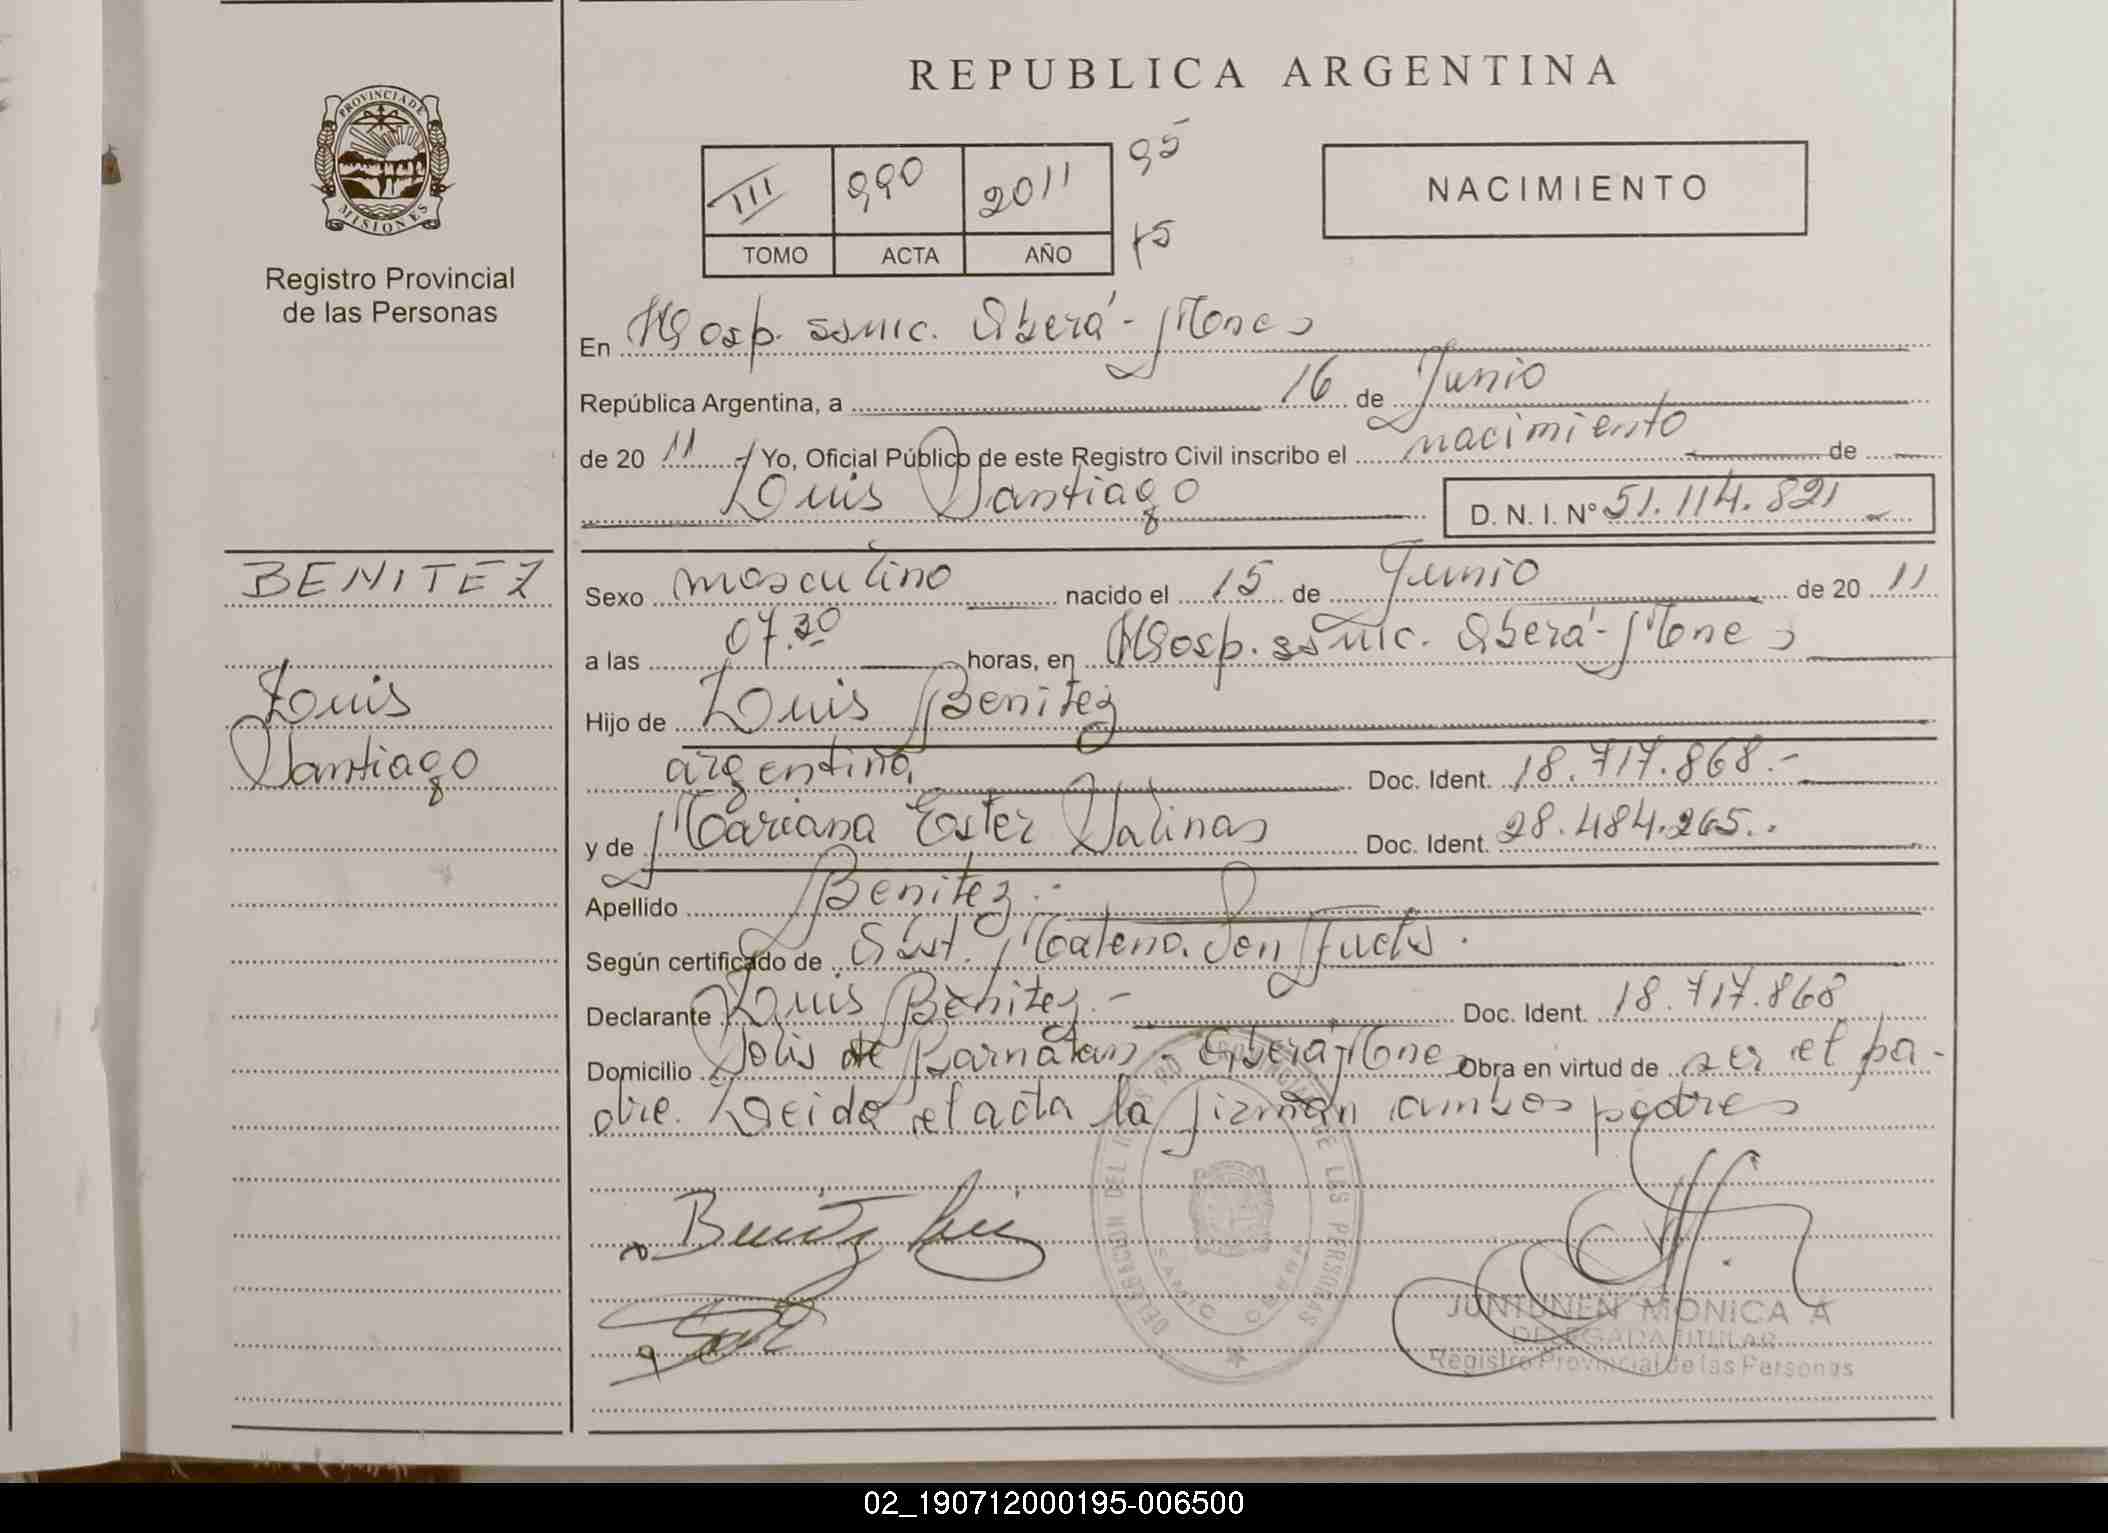 REPUBLICA ARGENTINA
PROVINCIA DE MISIONES
Registro Provincial
de las Personas
III 990 2011 95
TOMO ACTA AÑO 75
NACIMIENTO
En Hosp. ssmic. Oberá - Mones
República Argentina, a 16 de Junio
de 20 11 Yo, Oficial Público de este Registro Civil inscribo el nacimiento de
Luis Santiago D. N. I. N° 51.114.821
BENITEZ
Luis
Santiago
Sexo masculino nacido el 15 de Junio de 20 11
a las 07.30 horas, en Hosp. ssmic. Oberá - Mones
Hijo de Luis Benitez
argentino, Doc. Ident. 18.717.868.-
y de Mariana Ester Salinas Doc. Ident. 28.484.265..
Apellido Benitez.-
Según certificado de Obst.
Declarante Luis Benitez.- Doc. Ident. 18.717.868
Domicilio Solis de - Oberá - Mones Obra en virtud de ser el pa-
dre. Leida el acta la firman ambos padres
Benitez Luis
DELEGACION DEL REGISTRO PROVINCIAL DE LAS PERSONAS
JUNTUNEN MONICA A
DELEGADA TITULAR
Registro Provincial de las Personas
02_190712000195-006500